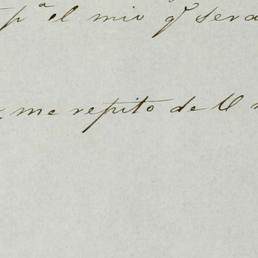 pª el mio qᵉ sera
me repito de U